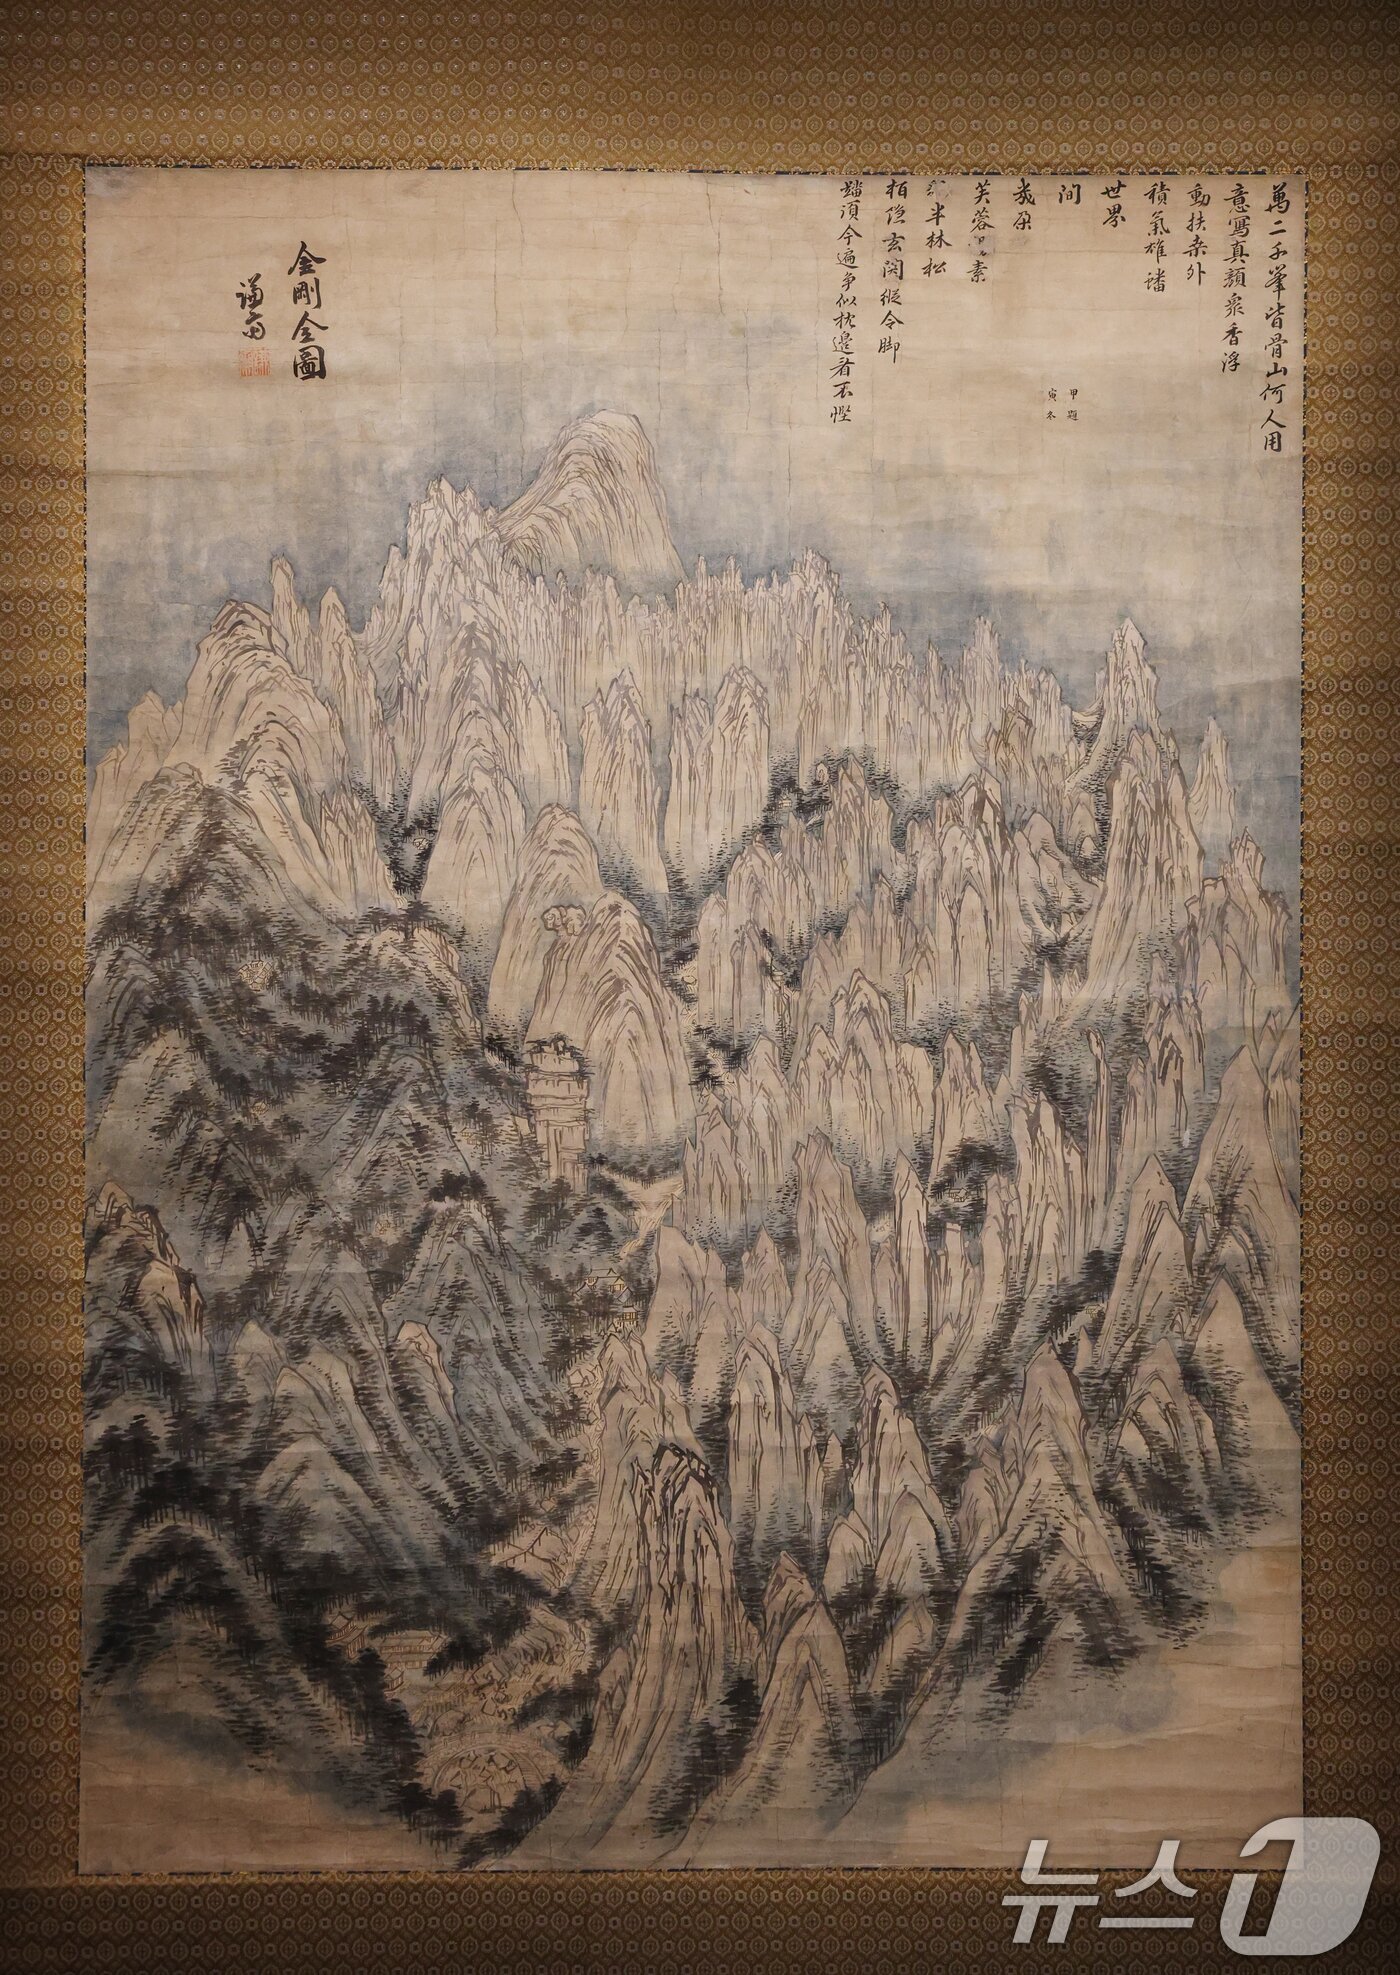 萬二千峯皆骨山何人用
意寫真顔衆香浮
動扶桒外
積氣雄蟠
世界
間
幾朶
芙蓉
素
半林松
栢隐玄関縱令脚
踏須今遍争似枕邉看不慳
甲題
寅冬
金剛全圖
謙齋
뉴스1